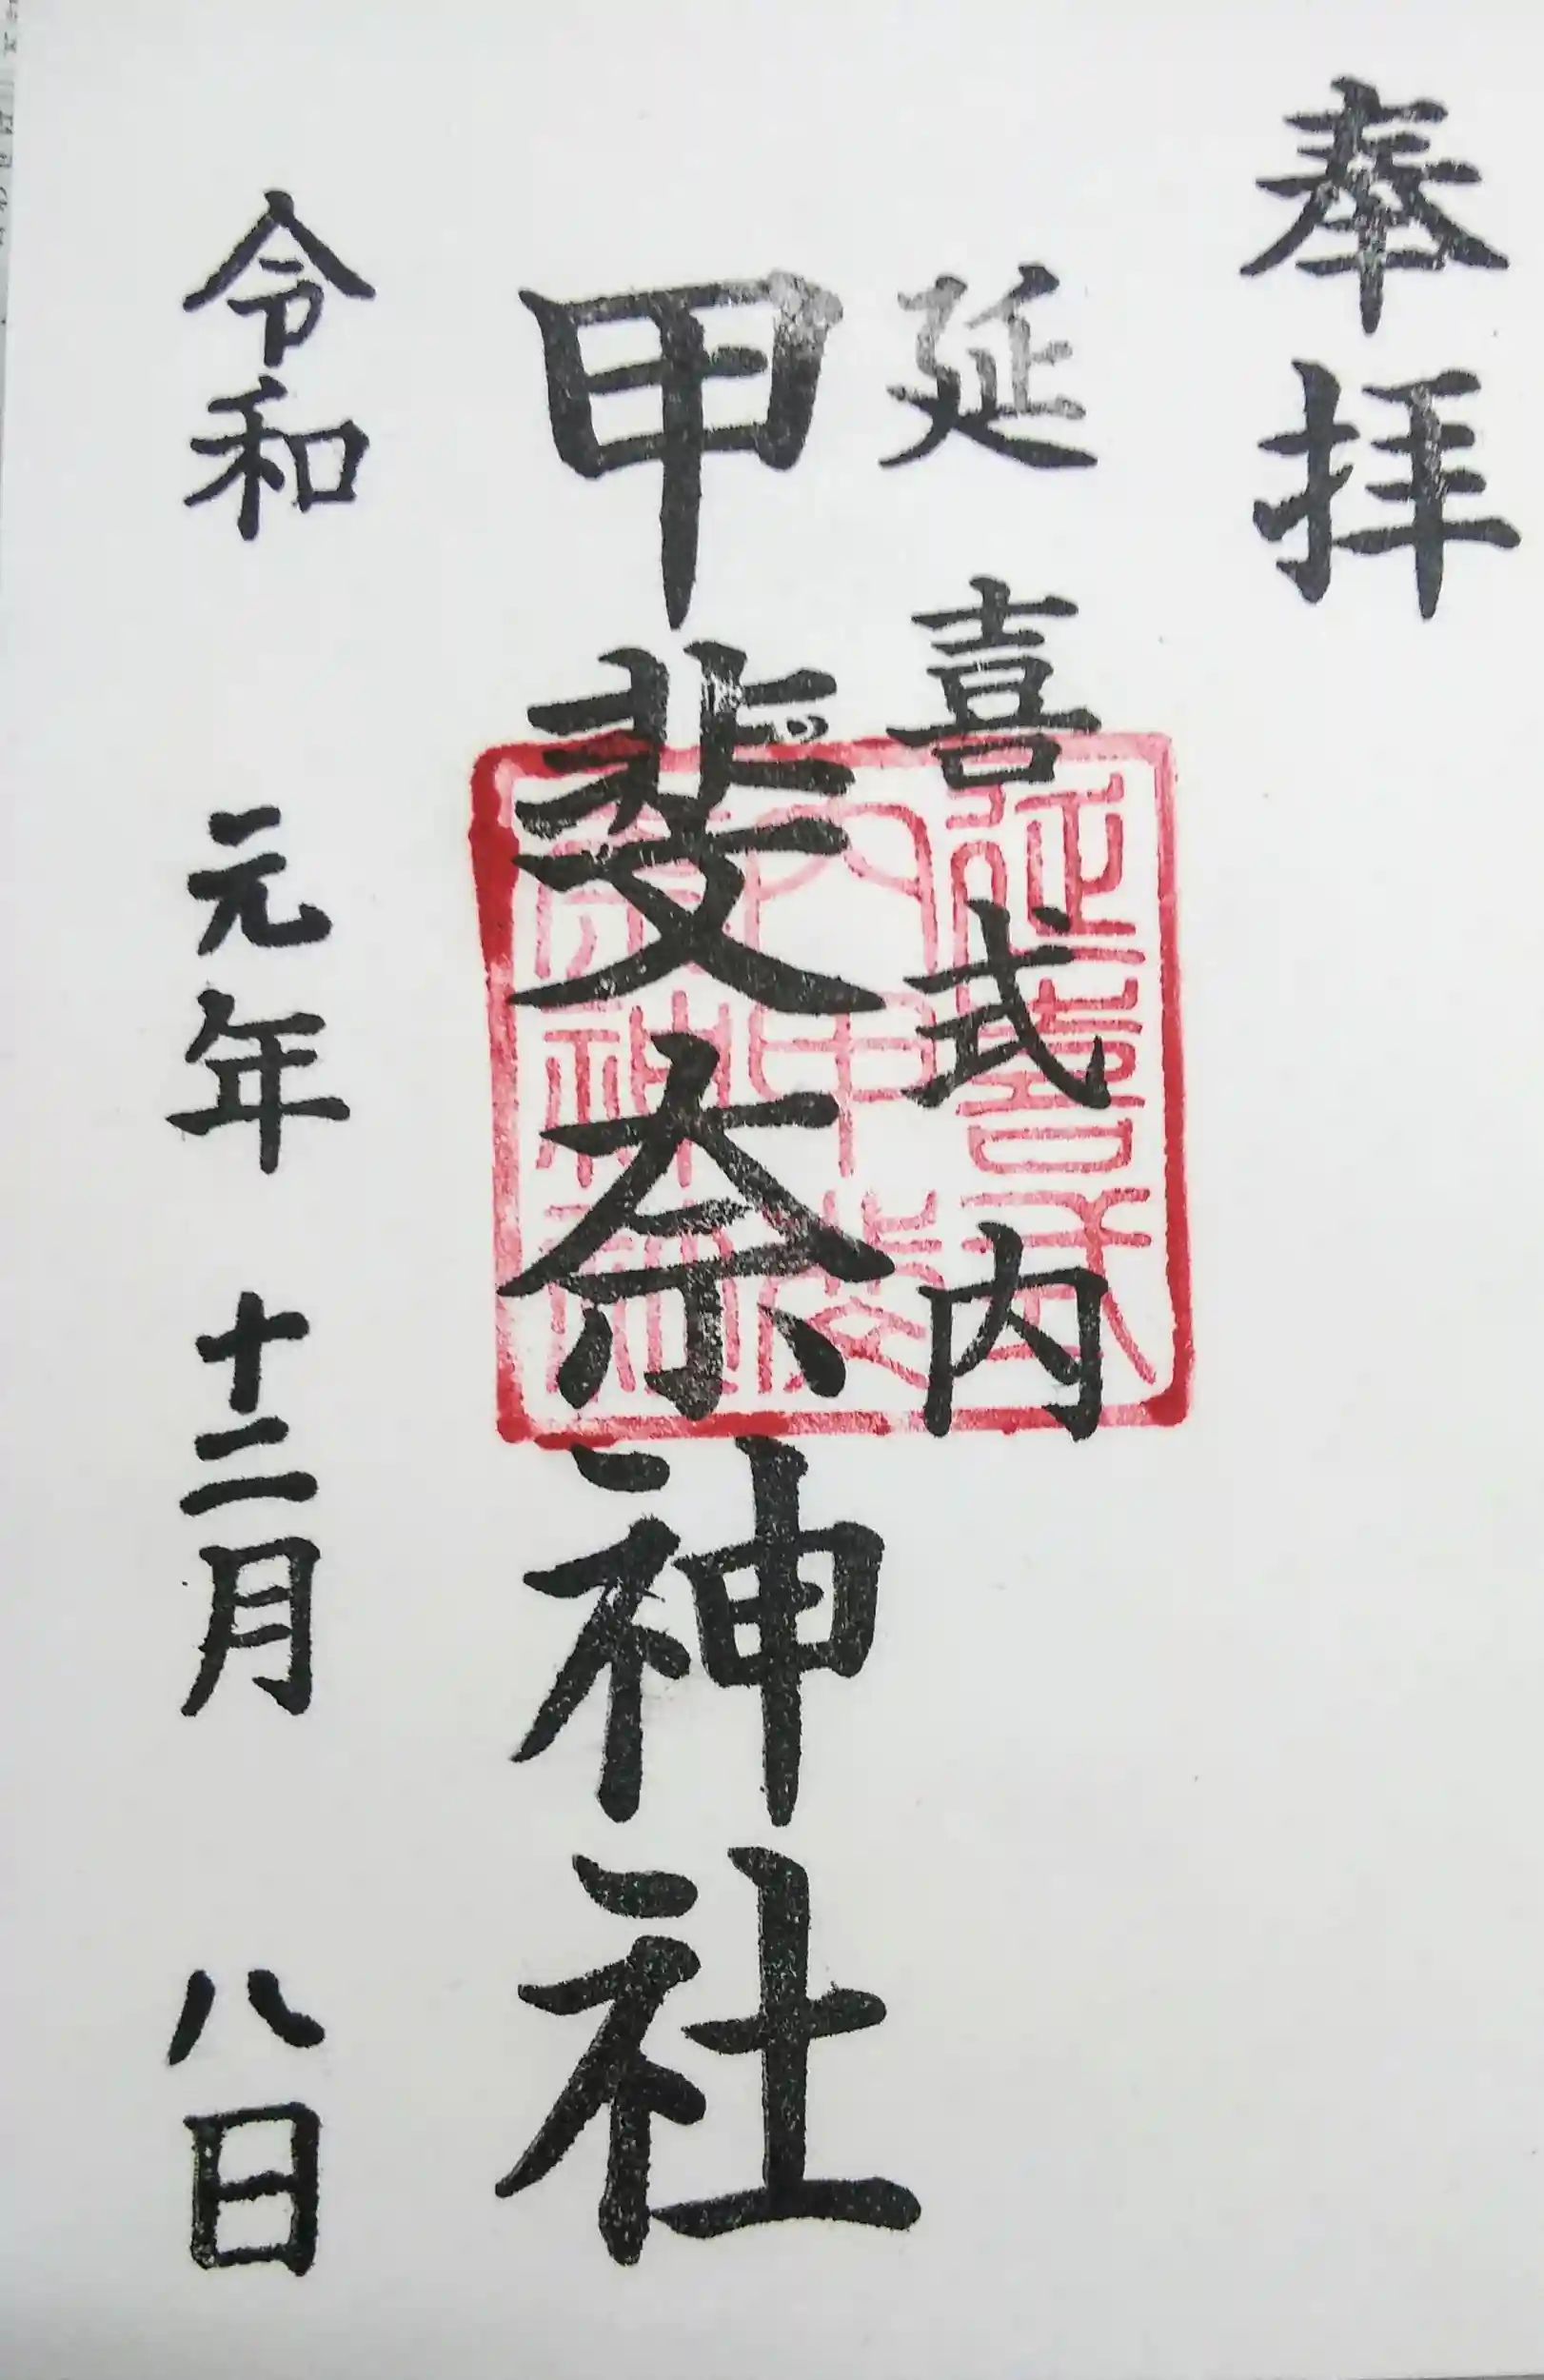 奉拝
延喜式内
甲斐奈神社
令和元年十二月八日
延喜式
内甲斐
奈神社